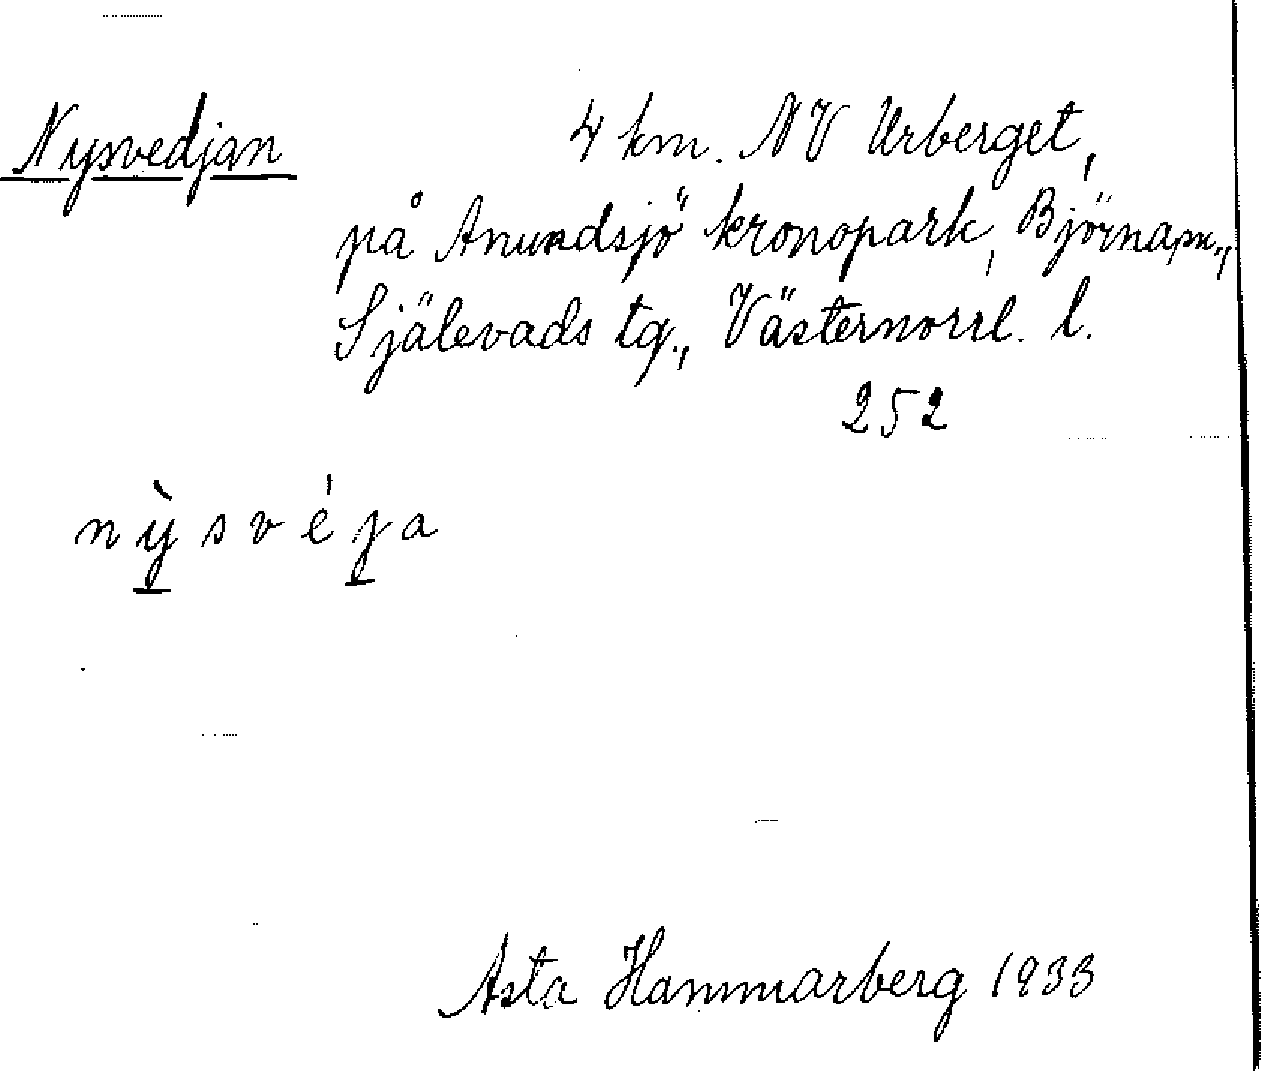 Nysvedjan 4 km. NV Urberget,
på Anundsjö kronopark, Björnapm.,
Själevads tg., Västernorrl. l.
252
nỳsvéja
Asta Hammarberg 1933